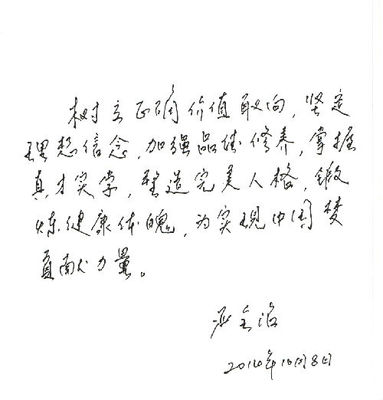 树立正确价值取向,坚定
理想信念,加强品德修养,掌握
真才实学,塑造完美人格,锻
炼健康体魄,为实现中国梦
贡献力量。
10月8日